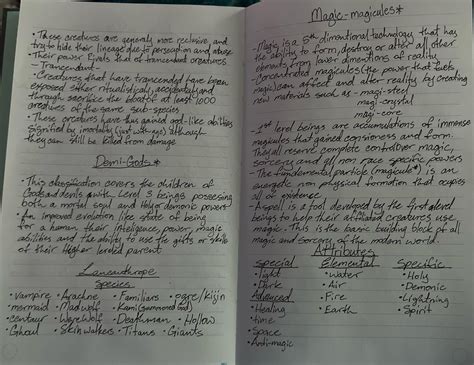 • These creatures are generally more reclusive, and
try to hide their lineage due to persecution and abuse
• Their power rivals that of trancended creatures.
- Trancendant -
• Creatures that have trancended have been
exposed either ritualisticly, accidentally and
through sacrifice the blood of at least 1000
creatures of the same sub-species
• These creatures have thus gained god-like abilities
signified by imortality (just with age) although
they can still be killed from damage
Demi-Gods*
• This classification covers the children of
Gods and devils and the Level 3 beings possesing
both a mortal soul and Holy or demonic powers
• An improved evolution like state of being
for a human their intelligence, power, magic
abilities and the ability to use the gifts or skills
of their Higher leveled parent
Lananthrope
Species
• Vampire • Arachne • Familiars • ogre/kijin
• mermaid • Mad wolf • Kami (summoned God)
• centaur • Werewolf • Deathman • Hollow
• Ghoul • Skin walkers • Titans • Giants
Magic - magicules*
- Magic is a 5th dimentional technology that has
the ability to form, destroy or alter all other
elements from lower dimentions of reality
- Concentrated magicules (the power that fuels
magic) can affect and alter reality by creating
new materials such as - magi-steel
magi-crystal
magi-core
- 1st level beings are accumulations of immense
magicules that gained consiousness and form.
They all reserve complete control over magic,
sorcery and all non race specific powers
- The fundamental particle (magicule*) is an
energetic non physical formation that ocupies
all of existence
- A spell is a tool developed by the first leveled
beings to help their affiliated creatures use
magic. This is the basic building block of all
magic and sorcery of the modern world.
Attributes
Special Elemental Specific
• Light • Water • Holy
• Dark • Air • Demonic
Advanced • Fire • Lightning
• Healing • Earth • Spirit
• time
• Space
• Anti-magic